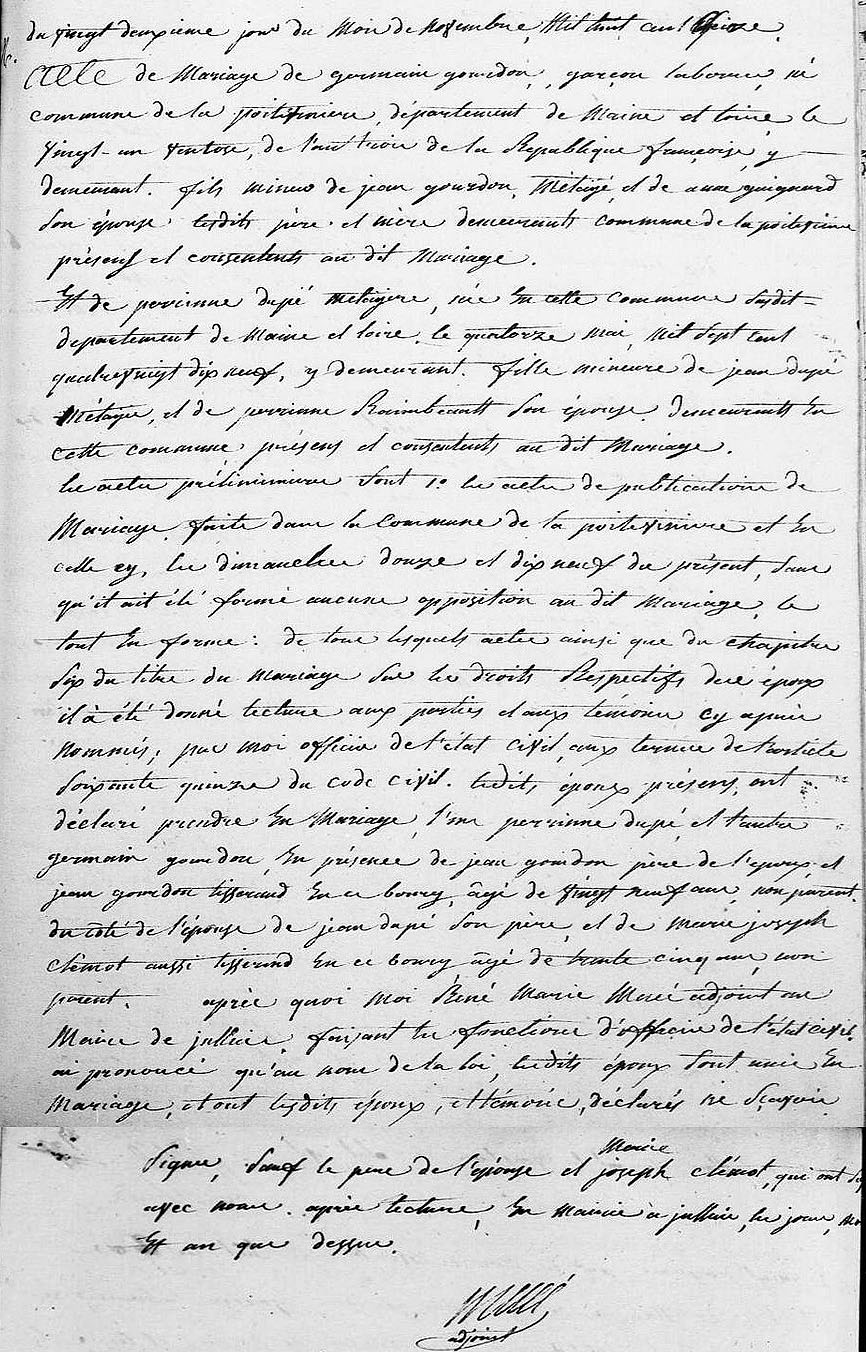 du vingt deuxieme jour du Mois de Novembre, Mil huit cent
acte de Mariage de germain gourdon, garçon laboureur, né
commune de la poiteviniere, département de Maine et loire le
vingt-un ventose, de l'an trois de la Republique françoise, y
demeurant. fils mineur de jean gourdon, Métayé, et de anne guignard
son épouse lesdits père et mère demeurants commune de la poiteviniere
présens et consentents au dit Mariage.
Et de perrinne dupé metayere, née En cette commune susdit
departement de Maine et loire, le quatorze mai, Mil sept cent
quatrevingt dix neuf, y demeurant. fille mineure de jean dupé
Métayer, et de perrinne Raimbeault son épouse demeurants En
cette commune, présens et consentents au dit Mariage.
les actes préliminaires sont 1º les actes de publications de
Mariage, faite dans la commune de la poiteviniere et En
celle cy, les dimanches douze et dix neuf du présent, sans
qu'il ait été formé aucune opposition au dit Mariage, le
tout En forme: de tous lesquels actes ainsi que du chapitre
six du titre du Mariage sur les droits Respectifs des époux
il à été donné lecture aux parties et aux témoins cy après
nommés, par moi officier de l'état civil, aux termes de l'article
soixante quinze du code civil. lesdits époux présens, ont
déclaré prendre En Mariage, l'un perrinne dupé, et l'autre
germain gourdon, En présence de jean gourdon père de l'époux et
jean gourdon tisserand En ce bourg, âgé de vingt neuf ans, non parent.
du côté de l'épouse de jean dupé son père, et de marie joseph
clémot aussi tisserand En ce bourg âgé de trente cinq ans, non
parent. après quoi Moi René Marie Macé adjoint au
Maire de jallais, faisant les fonctions d'officier de l'état civil.
ai prononcé qu'au nom de la loi, lesdits époux sont unis En
Mariage, et ont lesdits époux, et témoins, déclarés ne sçavoir
signer, sauf le pere de l'épouse et Marie joseph clémot, qui ont
avec nous. après lecture, En mairie à jallais, les jour,
Et an que dessus.
Macé
adjoint